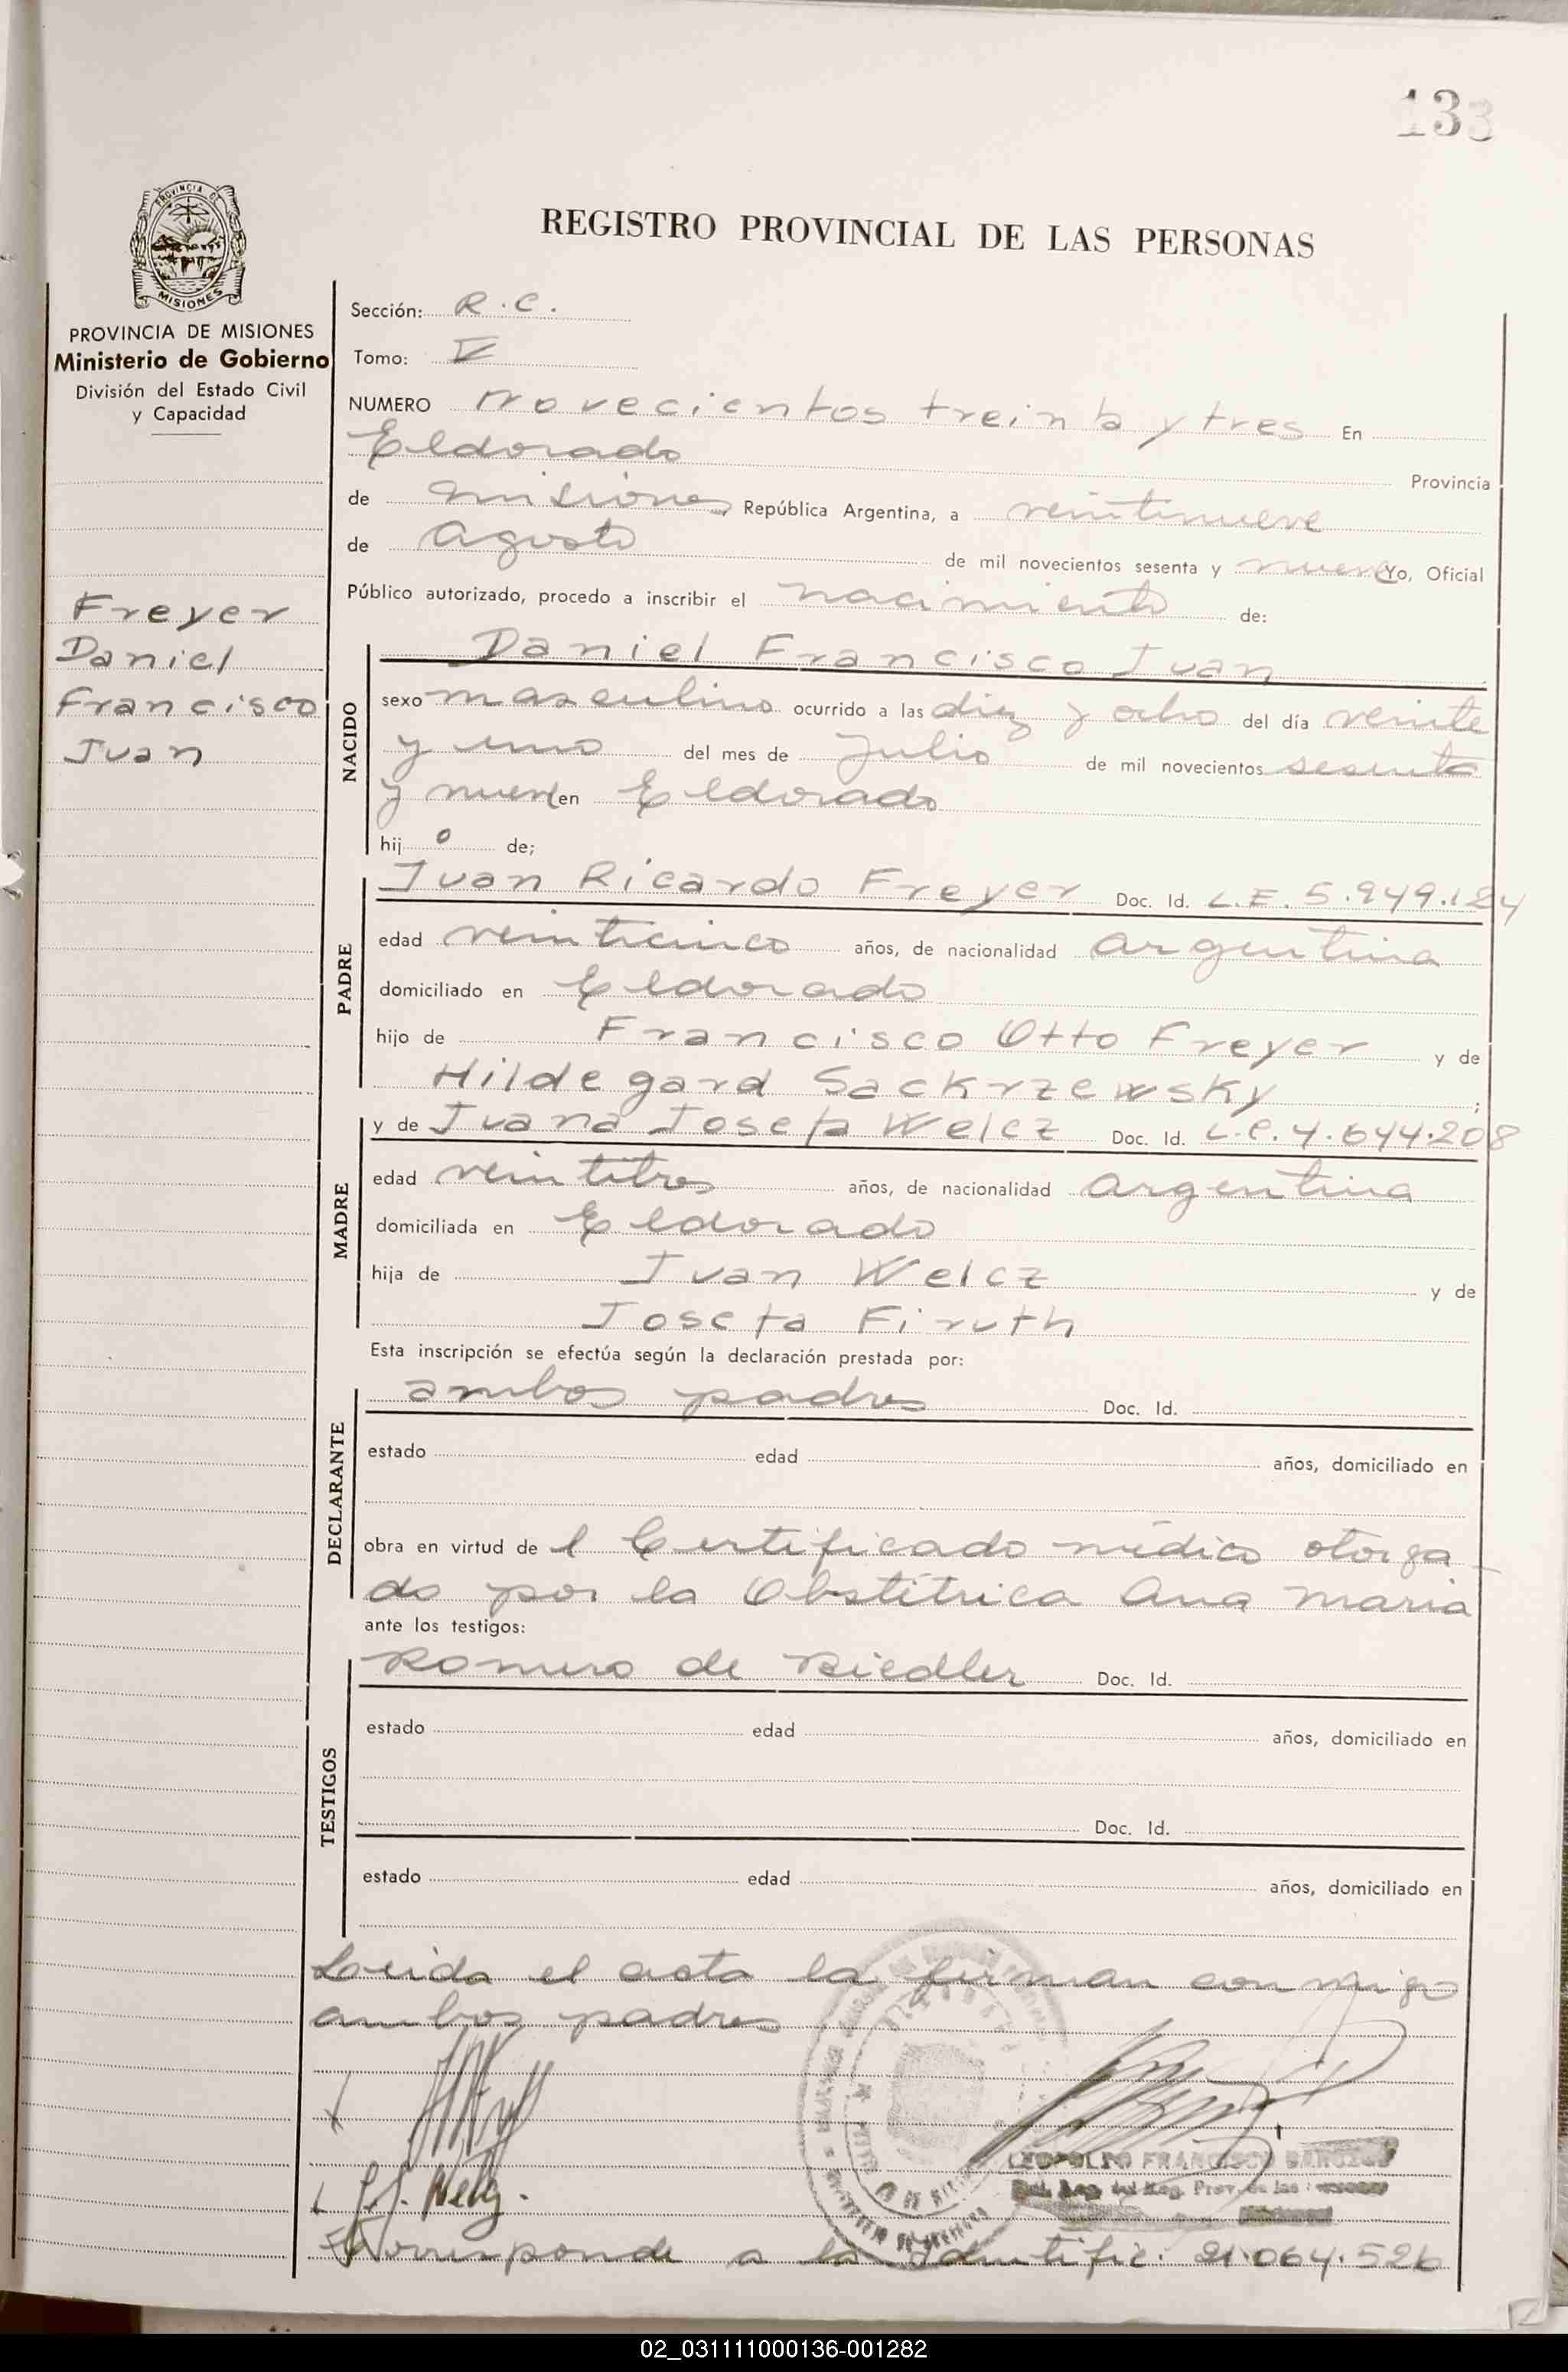 133
PROVINCIA DE
MISIONES
PROVINCIA DE MISIONES
Ministerio de Gobierno
División del Estado Civil
y Capacidad
Freyer
Daniel
Francisco
Juan
REGISTRO PROVINCIAL DE LAS PERSONAS
Sección: R.C.
Tomo: V
NUMERO novecientos treinta y tres En
Eldorado Provincia
de Misiones República Argentina, a veintinueve
de Agosto de mil novecientos sesenta y nueve Yo, Oficial
Público autorizado, procedo a inscribir el nacimiento de:
NACIDO
Daniel Francisco Juan
sexo masculino ocurrido a las diez y ocho del día veinte
y uno del mes de Julio de mil novecientos sesenta
y nueve en Eldorado
hij o de;
PADRE
Juan Ricardo Freyer Doc. Id. L.E. 5.949.124
edad veinticinco años, de nacionalidad argentina
domiciliado en Eldorado
hijo de Francisco Otto Freyer y de
Hildegard Sackrzewsky ;
MADRE
y de Juana Josefa Welcz Doc. Id. L.C. 4.644.208
edad veintitres años, de nacionalidad argentina
domiciliada en Eldorado
hija de Juan Welcz y de
Josefa Firuth
Esta inscripción se efectúa según la declaración prestada por:
DECLARANTE
ambos padres Doc. Id.
estado edad años, domiciliado en
obra en virtud de l Certificado médico otorga
do por la Obstétrica Ana Maria
ante los testigos:
TESTIGOS
Romero de Riedler Doc. Id.
estado edad años, domiciliado en
Doc. Id.
estado edad años, domiciliado en
Leida el acta la firman conmigo
ambos padres
LEOPOLDO FRANCISCO
J.J. Welcz.
Corresponde a la Identific. 21.064.526
02_031111000136-001282